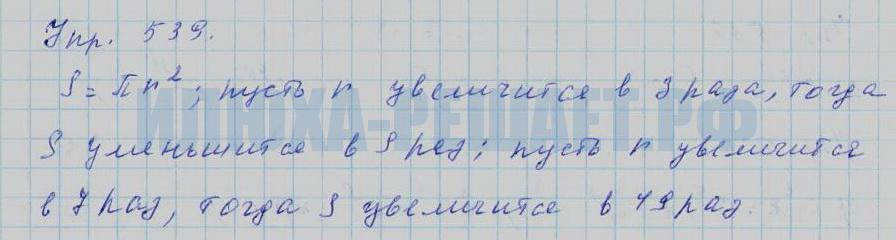 Упр. 539.
S = πr²; пусть r увеличится в 3 раза, тогда
S уменьшится в 9 раз; пусть r увеличится
в 7 раз, тогда S увеличится в 49 раз.
ИЛЮХА-РЕШАЕТ.РФ